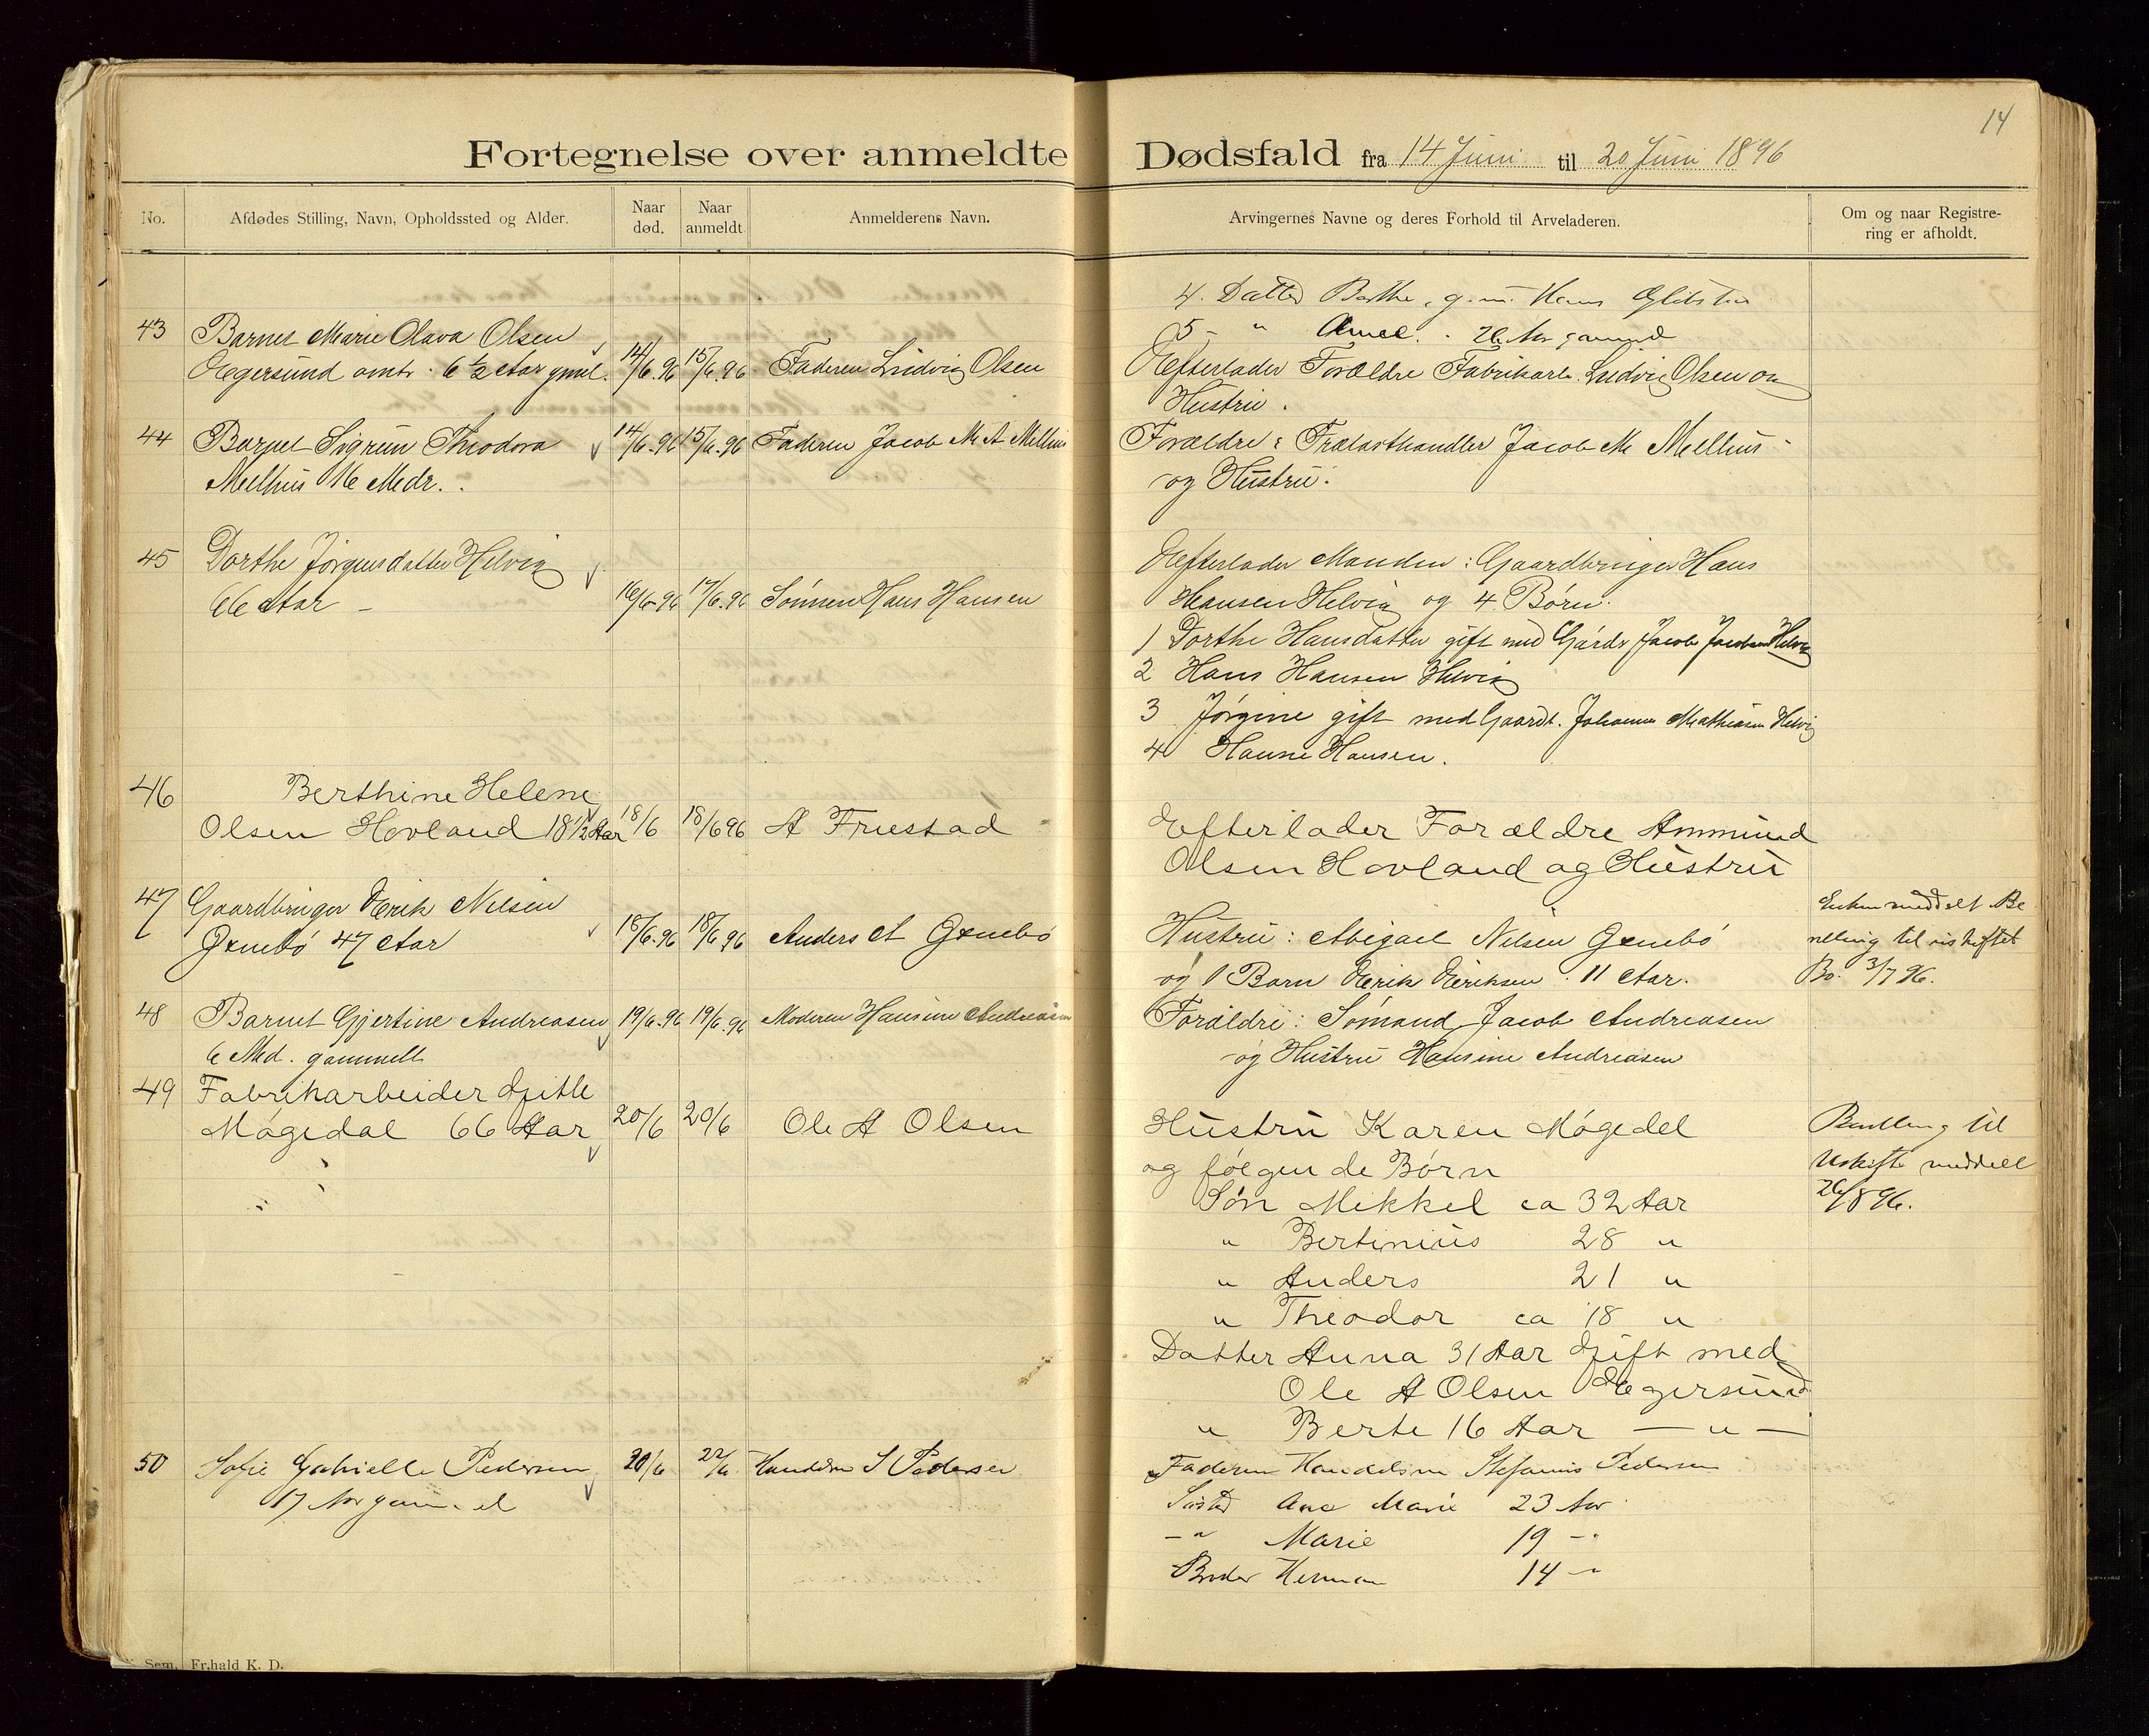 14
Fortegnelse over anmeldte Dødsfald fra 14 Juni til 20 Juni 1896
No.
Afdødes Stilling, Navn, Opholdssted og Alder.
Naar død.
Naar anmeldt
Anmelderens Navn.
Arvingernes Navne og deres Forhold til Arveladeren.
Om og naar Registre-
ring er afholdt.
4. Datter Berthe, g. m. Hans
5 - "
43 Barnet Marie Olava Olsen
Egersund omtr. 6 1/2 Aar gml. 14/6.96 15/6.96 Faderen Ludvig Olsen
Efterlader Forældre Fabrikarb. Ludvig Olsen og
Hustru.
44 Barnet Sigrun Theodora 14/6.96 15/6.96 Faderen Jacob M. A. Mellhus
Mellhus 16 Mdr.
Forældre: Trælasthandler Jacob M Mellhus
og Hustru.
45 Dorthe Jörgensdatter Helvig
66 Aar - 16/6-96 17/6.96 Sönnen Hans Hansen
Efterlader Manden: Gaardbruger Hans
Hansen Helvig og 4 Börn.
1 Dorthe Hansdatter gift med Gårdb Jacob Jacobsen Helvig
2 Hans Hansen Helvig
3 Jörgine gift med Gaardb. Johannes Mathiasen Helvig
4 Hanne Hansen.
46 Berthine Helene
Olsen Hovland 18 1/2 Aar 18/6 18/6 96 A Fruestad
Efterlader Forældre Ammund
Olsen Hovland og Hustru
47 Gaardbruger Erik Nilsen
Gxnebö 47 Aar 18/6.96 18/6.96 Anders A Gxnebö
Hustru: Abigael Nilsen Gxnebö
og 1 Barn Erik Eriksen 11 Aar.
Enken meddelt Be
villing til uskiftet
Bo. 3/7 96.
48 Barnet Gjertine Andreasen 19/6.96 19/6.96 Moderen Hansine Andreasen
6 Md. gammelt
Forældre: Sömand Jacob Andreasen
og Hustru Hansine Andreasen
49 Fabrikarbeider Gitle
Mögedal 66 Aar 20/6 20/6 Ole A Olsen
Hustru Karen Mögedel
og fölgende Börn
Sön Mikkel ca 32 Aar
" Bertinius 28 "
" Anders 21 "
" Theodor ca 18 "
Datter Anna 31 Aar Gift med
Ole A Olsen Egersund
" Berte 16 Aar — " —
Bevilling til
Uskifte meddelt
26/8 96.
50 Sofie Gabrielle Pedersen 20/6 22/6 Handelsm S Pedersen
17 Aar gam. el
Faderen Handelsm Stefanus Pedersen
Söster Ane Marie 23 Aar
- " Marie 19 - "
Broder Herman 14 - "
Sem, Fr.hald K. D.